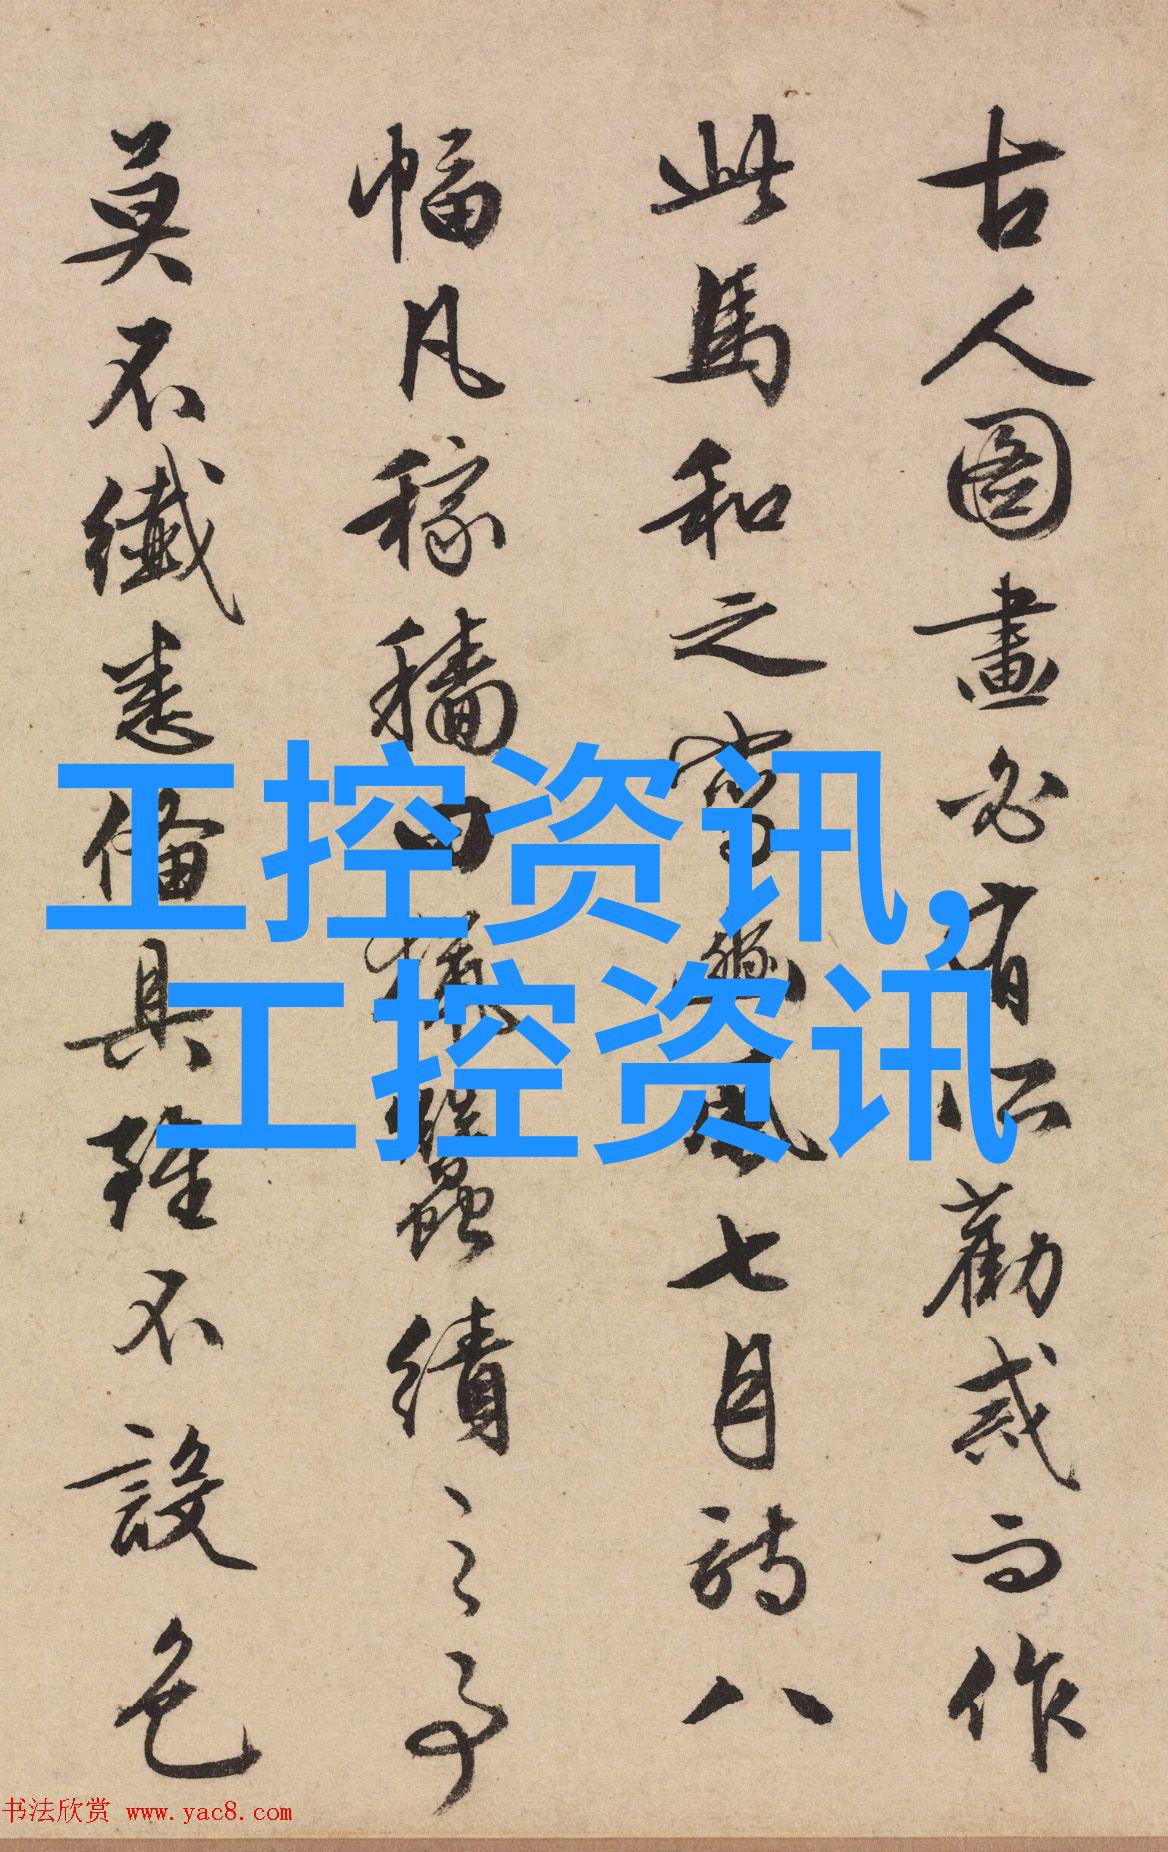 古人圖畫必有所勸戒而作
此馬和之寫豳風七月詩八
幅凡稼穡田獵蠶績之事
莫不纖悉備具雖不設色
工控资讯,
工控资讯
书法欣赏 www.yac8.com